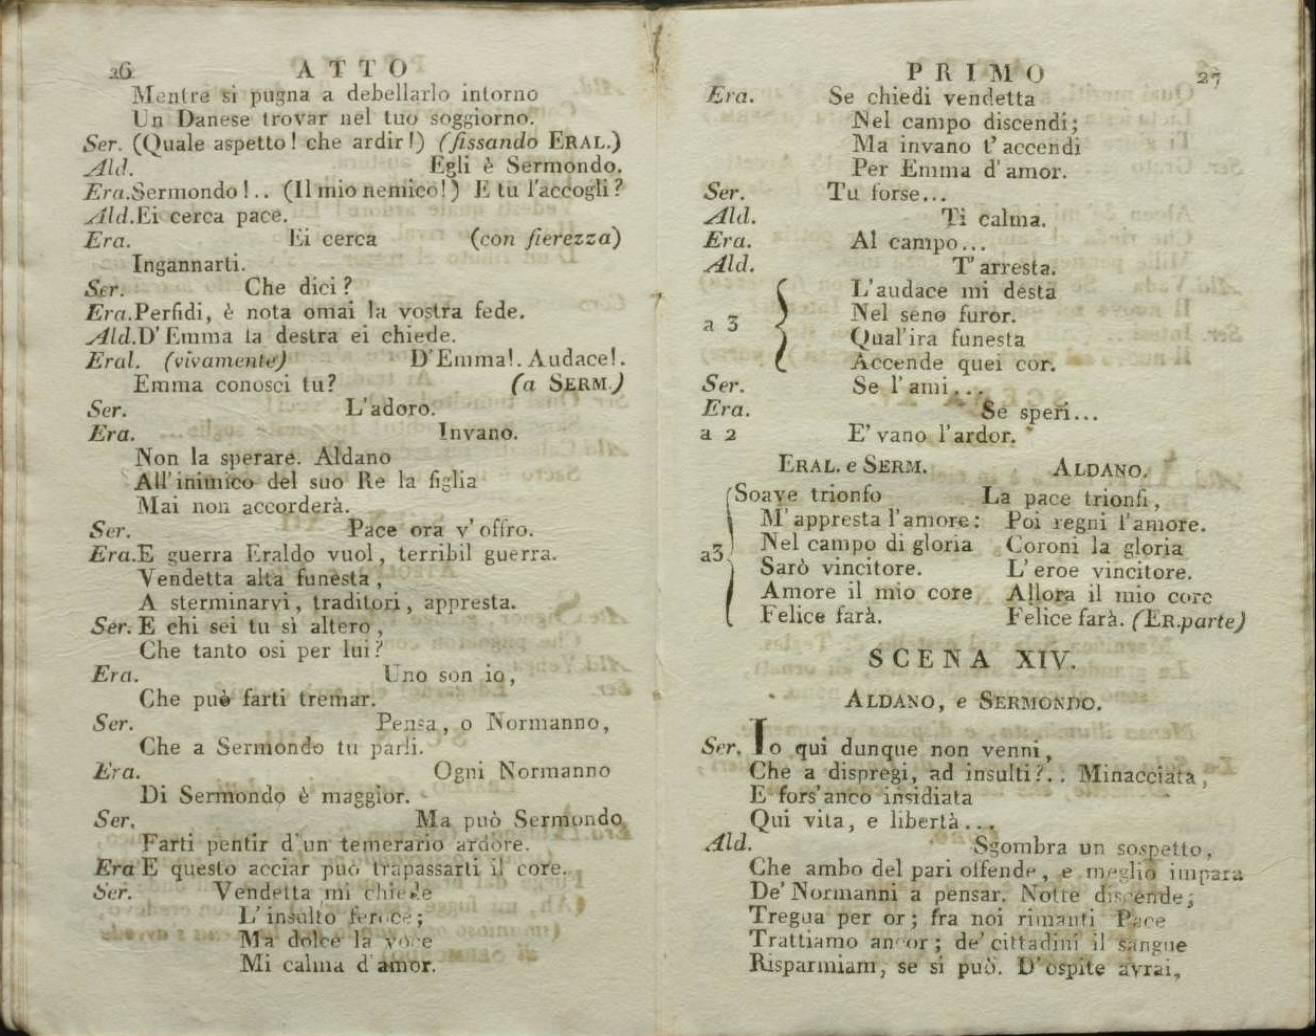 26 ATTO
Mentre si pugna a debellarlo intorno
Un Danese trovar nel tuo soggiorno.
Ser. (Quale aspetto! che ardir!) (fissando ERAL.)
Ald. Egli è Sermondo.
Era. Sermondo!.. (Il mio nemico!) E tu l'accogli?
Ald. Ei cerca pace.
Era. Ei cerca (con fierezza)
Ingannarti.
Ser. Che dici?
Era. Perfidi, è nota omai la vostra fede.
Ald. D'Emma la destra ei chiede.
Eral. (vivamente) D'Emma!. Audace!.
Emma conosci tu? (a SERM.)
Ser. L'adoro.
Era. Invano.
Non la sperare. Aldano
All'inimico del suo Re la figlia
Mai non accorderà.
Ser. Pace ora v'offro.
Era. E guerra Eraldo vuol, terribil guerra.
Vendetta alta funesta,
A sterminarvi, traditori, appresta.
Ser. E chi sei tu sì altero,
Che tanto osi per lui?
Era. Uno son io,
Che può farti tremar.
Ser. Pensa, o Normanno,
Che a Sermondo tu parli.
Era. Ogni Normanno
Di Sermondo è maggior.
Ser. Ma può Sermondo
Farti pentir d'un temerario ardore.
Era E questo acciar può trapassarti il core.
Ser. Vendetta mi chiede
L'insulto feroce;
Ma dolce la voce
Mi calma d'amor.
PRIMO 27
Era. Se chiedi vendetta
Nel campo discendi;
Ma invano t'accendi
Per Emma d'amor.
Ser. Tu forse...
Ald. Ti calma.
Era. Al campo...
Ald. T'arresta.
L'audace mi desta
a 3 Nel seno furor.
Qual'ira funesta
Accende quei cor.
Ser. Se l'ami...
Era. Se speri...
a 2 E' vano l'ardor.
ERAL. e SERM. ALDANO.
Soave trionfo La pace trionfi,
M'appresta l'amore: Poi regni l'amore.
a3 Nel campo di gloria Coroni la gloria
Sarò vincitore. L'eroe vincitore.
Amore il mio core Allora il mio core
Felice farà. Felice farà. (ER. parte)
SCENA XIV.
ALDANO, e SERMONDO.
Ser. Io qui dunque non venni,
Che a dispregi, ad insulti?.. Minacciata,
E fors'anco insidiata
Qui vita, e libertà...
Ald. Sgombra un sospetto,
Che ambo del pari offende, e meglio impara
De' Normanni a pensar. Notte discende;
Tregua per or; fra noi rimanti Pace
Trattiamo ancor; de' cittadini il sangue
Risparmiam, se si può. D'ospite avrai,